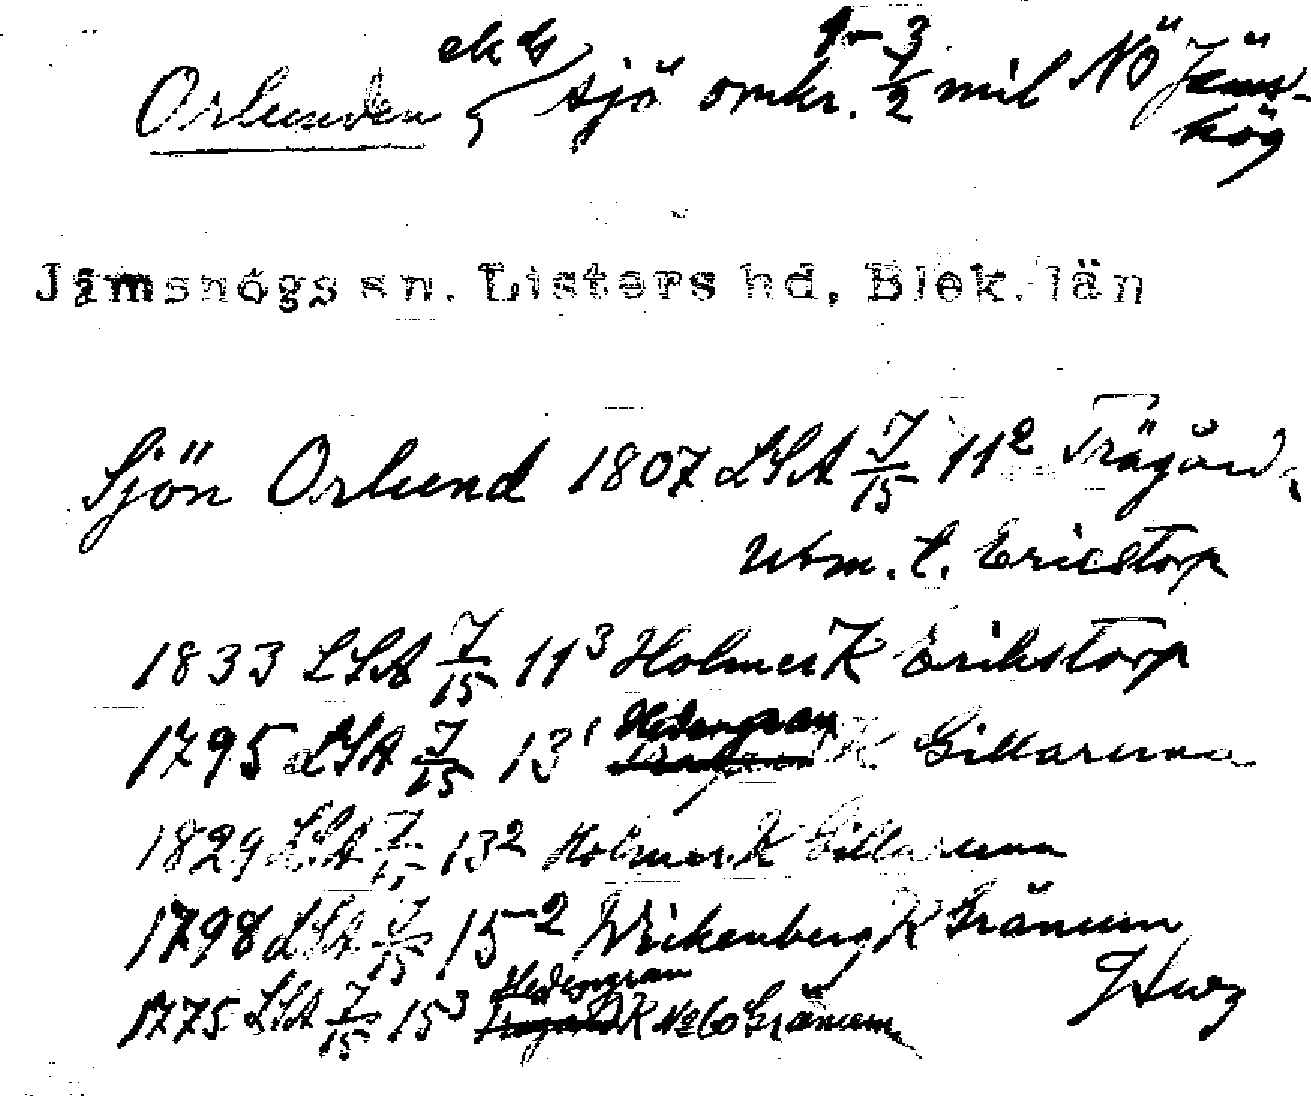 Orlunden ek bl, sjö omkr. 1/2 mil NÖ Jäms-
1-3
hög
Jämshögs sn. Listers hd, Blek. län
Sjön Orlund 1807 LSA 7/15 11² Trägård,
Utm. t. Ericstorp
1833 LSA 7/15 11³ Holmer K Erikstorp
1795 LSA 7/15 13¹ Hedengran K Gillaruna
1829 LSA 7/15 13² Holmer K Gillaruna
1798 LSA 7/15 15² Wickenberg K Gränum
1775 LSA 7/15 15³ Hedengran K No 60 Gränum